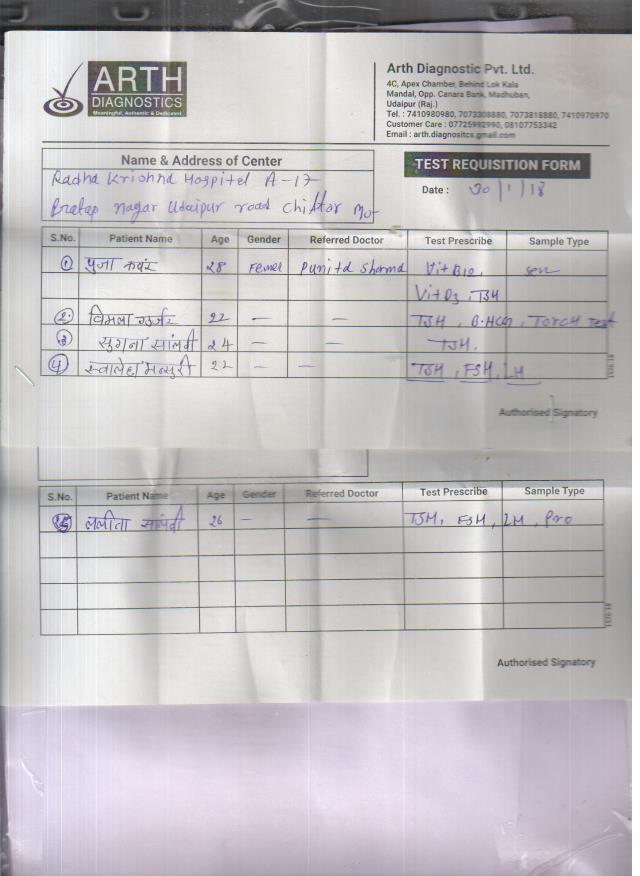 ARTH
DIAGNOSTICS
Meaningful, Authentic & Dedicated
Arth Diagnostic Pvt. Ltd.
4C, Apex Chamber, Behind Lok Kala
Mandal, Opp. Canara Bank, Madhuban,
Udaipur (Raj.)
Tel. : 7410980980, 7073308880, 7073818880, 7410970970
Customer Care : 07725992990, 08107753342
Email : arth.diagnositcs.gmail.com
Name & Address of Center
TEST REQUISITION FORM
Radha Krishna Hospitel A-17
Pratap nagar Udaipur road Chittor
Date : 30/1/18
S.No. Patient Name Age Gender Referred Doctor Test Prescribe Sample Type
1 पुजा कवंर 28 Femel Punita Sharma Vit B12, ser
Vit D3, TSH
2. विमला गुर्जर 22 — — TSH, B.HCG, TORCH Test
3 सुगना सांलवी 24 — — TSH.
4 मन्सुरी 22 — — TSH, FSH, LH
1536-18
Authorised Signatory
S.No. Patient Name Age Gender Referred Doctor Test Prescribe Sample Type
5 ललीता सालवी 26 — — TSH, FSH, LH, Pro
1536-18
Authorised Signatory